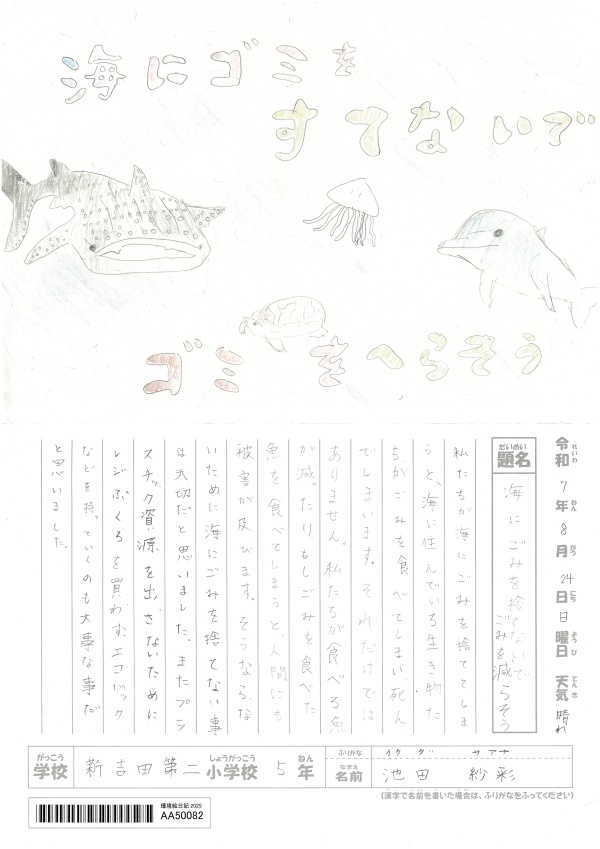 海にゴミを
すてないで
ゴミをへらそう
令和 7年 8月 24日 日曜日 天気 晴れ
れいわ ねん がつ にち ようび てんき
だいめい
題名
海にごみを捨てないで
ごみを減らそう
私たちが海にごみを捨ててしま
うと、海に住んでいる生き物た
ちがごみを食べてしまい死ん
でしまいます。それだけでは
ありません。私たちが食べる魚
が減ったり、もしごみを食べた
魚を食べてしまうと、人間にも
被害が及びます。そうならな
いために海にごみを捨てない事
は大切だと思いました。またプラ
スチック資源を出さないために
レジぶくろを買わずエコバック
などを持っていくのも大事な事だ
と思いました。
がっこう しょうがっこう ねん
学校 新吉田第二小学校 5年
ふりがな イケダ サアヤ
なまえ
名前 池田 紗彩
(漢字で名前を書いた場合は、ふりがなをふってください)
環境絵日記 2025
AA50082